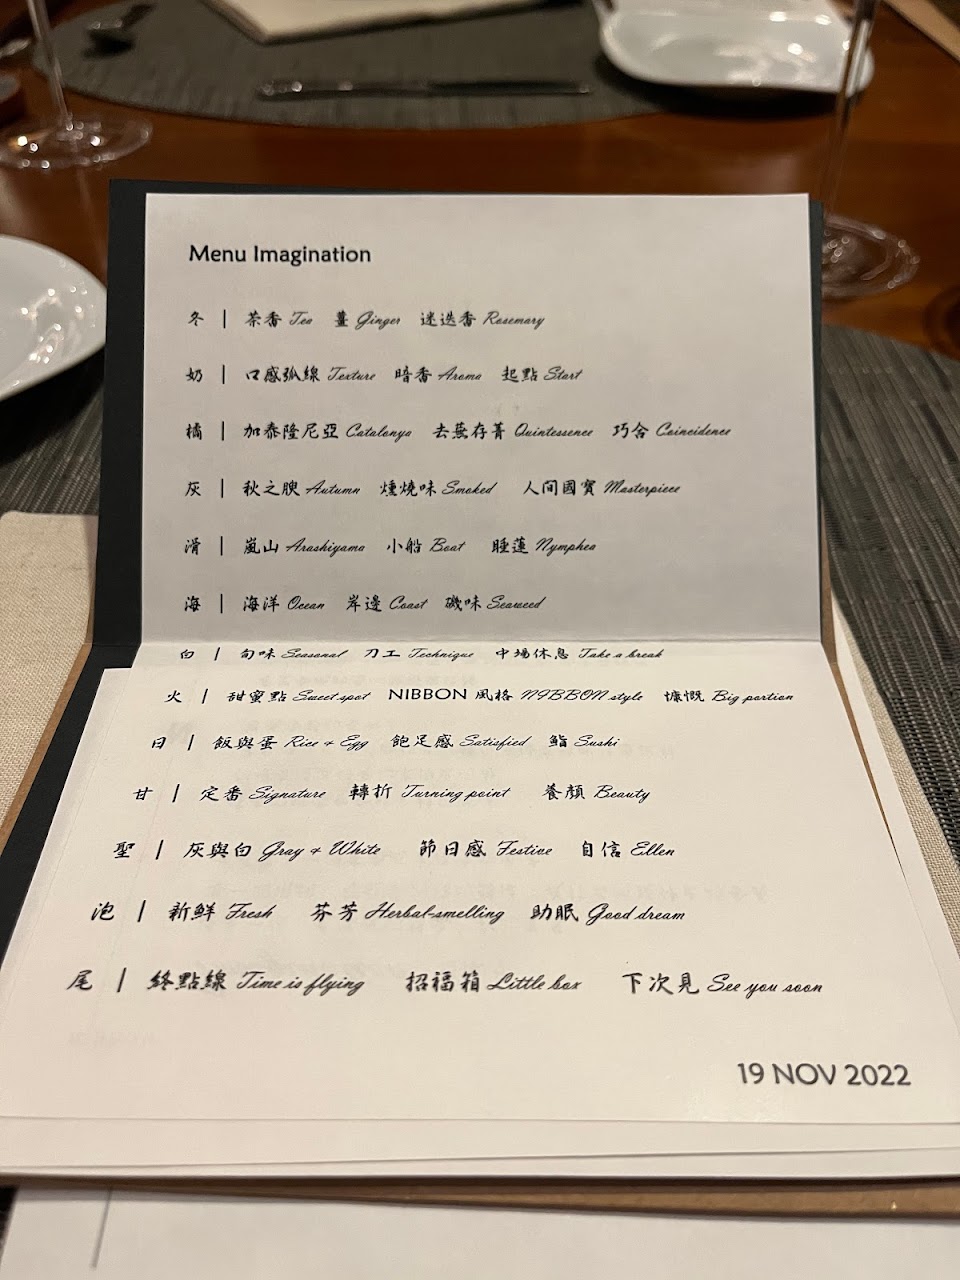 Menu Imagination
冬 | 茶香 Tea 薑 Ginger 迷迭香 Rosemary
奶 | 口感弧線 Texture 暗香 Aroma 起點 Start
橘 | 加泰隆尼亞 Catalonya 去蕪存菁 Quintessence 巧合 Coincidence
灰 | 秋之腴 Autumn 燻燒味 Smoked 人间國寶 Masterpiece
滑 | 嵐山 Arashiyama 小船 Boat 睡蓮 Nymphea
海 | 海洋 Ocean 岸邊 Coast 磯味 Seaweed
白 | 旬味 Seasonal 刀工 Technique 中場休息 Take a break
火 | 甜蜜點 Sweet spot NIBBON 風格 NIBBON style 慷慨 Big portion
日 | 飯與蛋 Rice & Egg 飽足感 Satisfied 鮨 Sushi
甘 | 定番 Signature 轉折 Turning point 養顏 Beauty
聖 | 灰與白 Gray & White 節日感 Festive 自信 Ellen
泡 | 新鮮 Fresh 芬芳 Herbal-smelling 助眠 Good dream
尾 | 終點線 Time is flying 招福箱 Little box 下次見 See you soon
19 NOV 2022